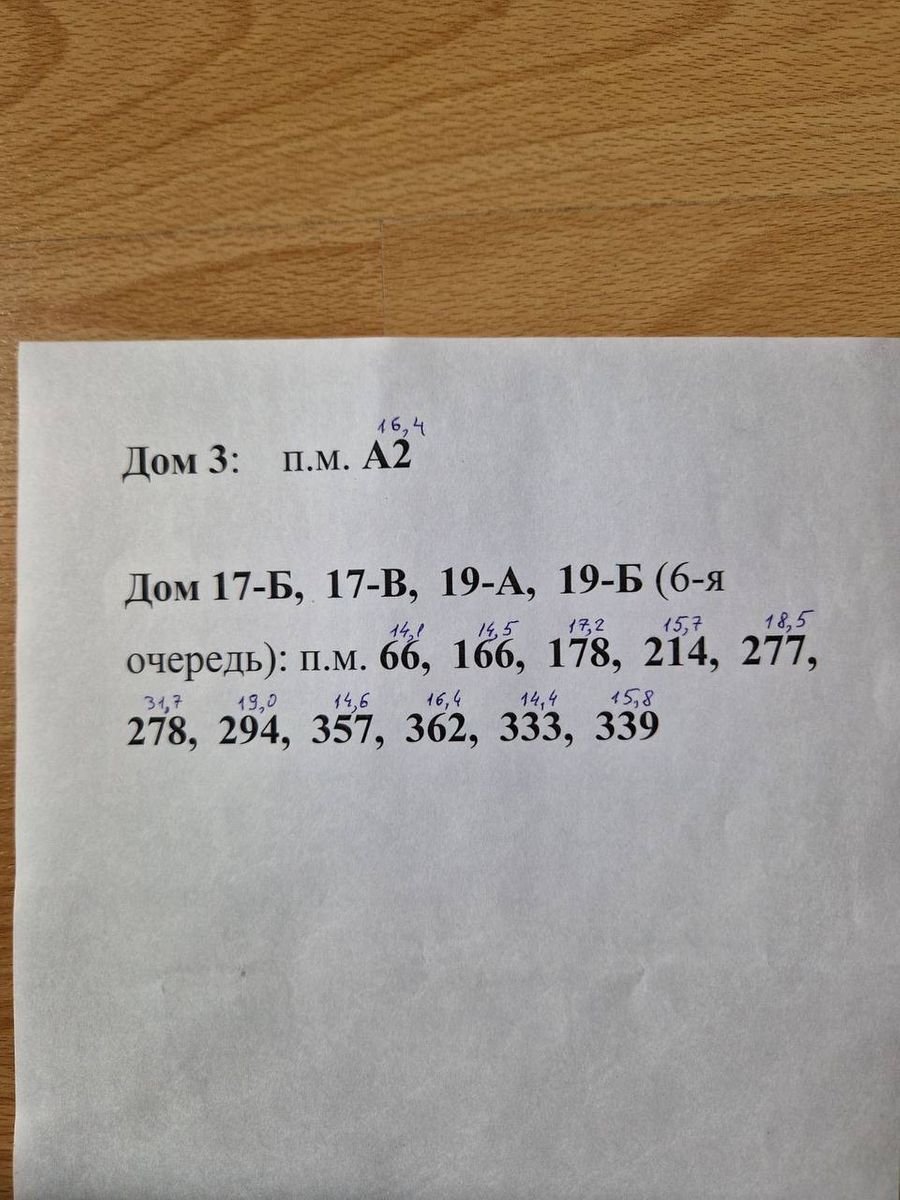 16,4
Дом 3: п.м. А2
Дом 17-Б, 17-В, 19-А, 19-Б (6-я
14,1 14,5 17,2 15,7 18,5
очередь): п.м. 66, 166, 178, 214, 277,
31,7 19,0 14,6 16,4 14,4 15,8
278, 294, 357, 362, 333, 339